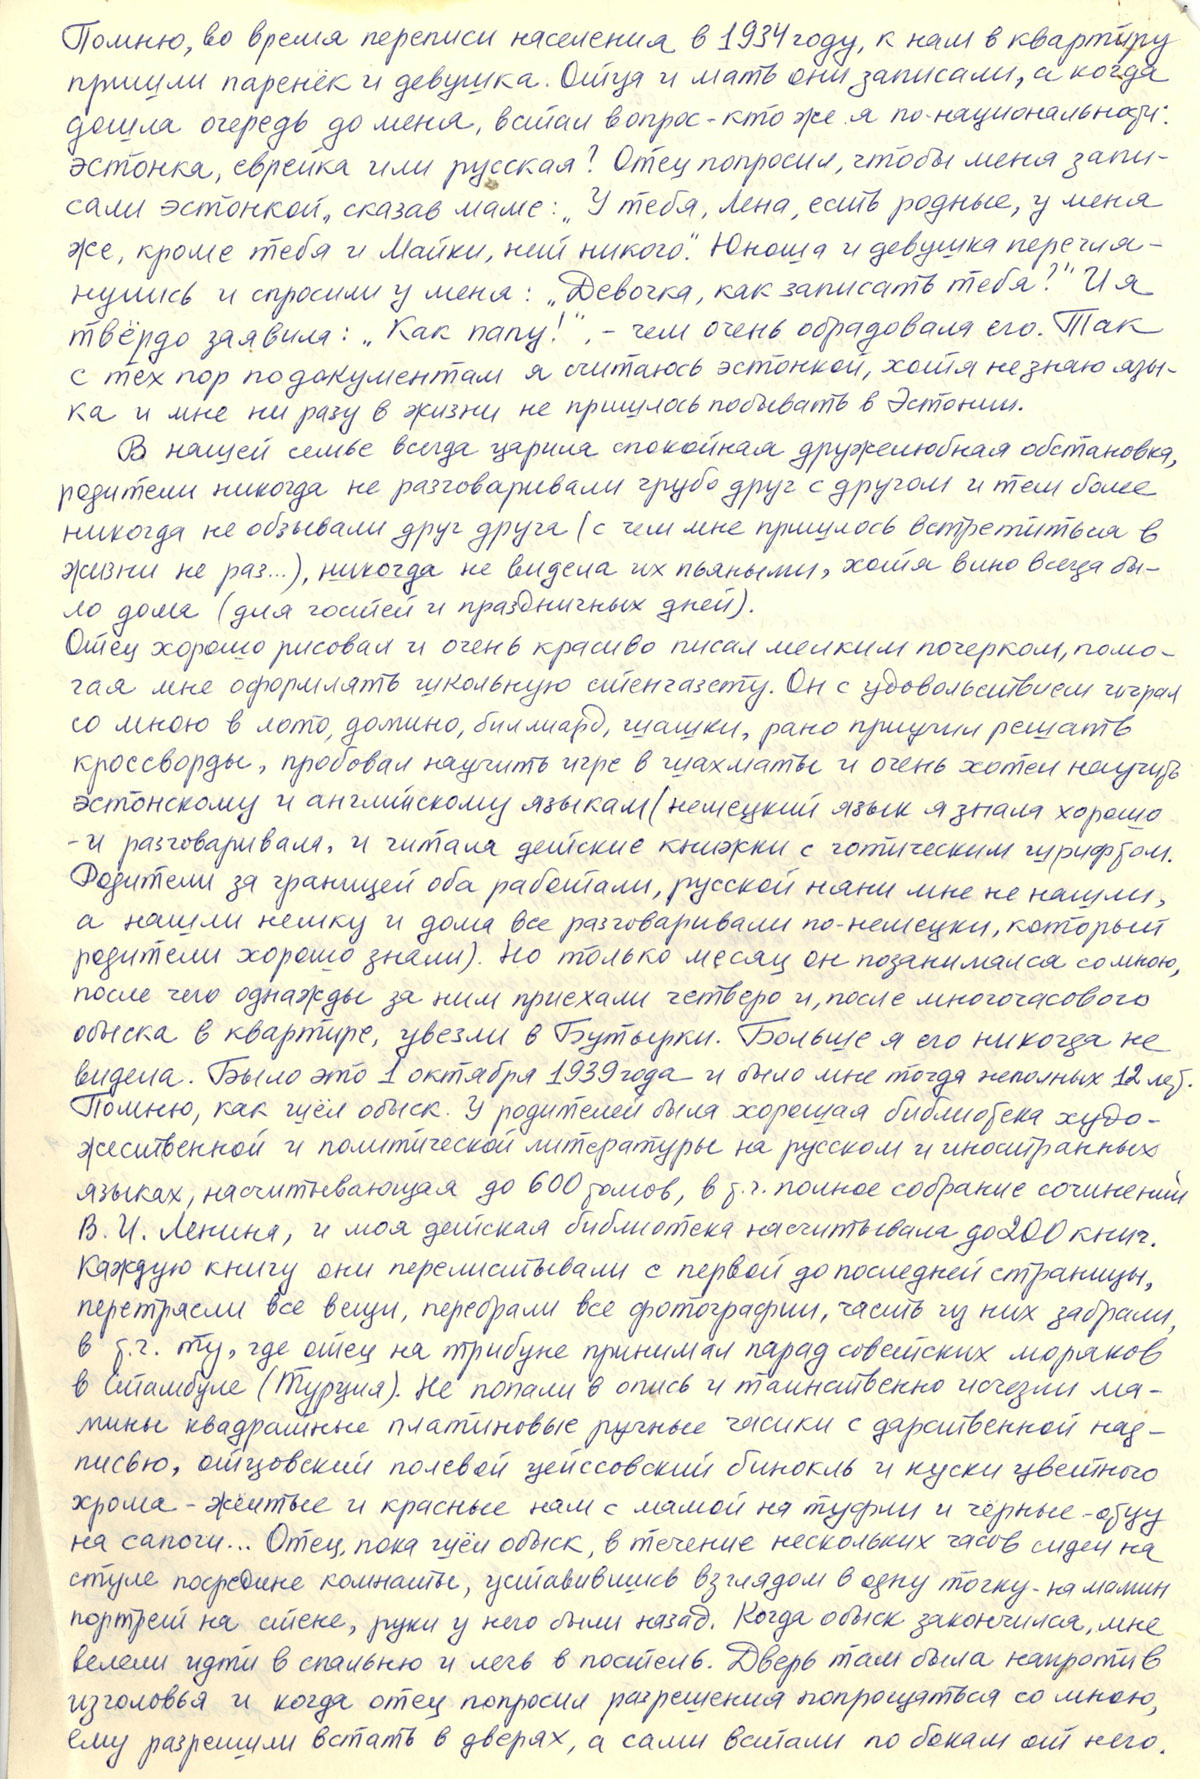 Помню, во время переписи населения в 1934 году, к нам в квартиру
пришли паренёк и девушка. Отца и мать они записали, а когда
дошла очередь до меня, встал вопрос - кто же я по-национальности:
эстонка, еврейка или русская? Отец попросил, чтобы меня запи-
сали эстонкой, сказав маме: „У тебя, Лена, есть родные, у меня
же, кроме тебя и Майки, нет никого". Юноша и девушка перегля-
нулись и спросили у меня: „Девочка, как записать тебя?" И я
твёрдо заявила: „Как папу!", - чем очень обрадовала его. Так
с тех пор по документам я считаюсь эстонкой, хотя не знаю язы-
ка и мне ни разу в жизни не пришлось побывать в Эстонии.
В нашей семье всегда царила спокойная дружелюбная обстановка,
родители никогда не разговаривали грубо друг с другом и тем более
никогда не обзывали друг друга (с чем мне пришлось встретиться в
жизни не раз...), никогда не видела их пьяными, хотя вино всегда бы-
ло дома (для гостей и праздничных дней).
Отец хорошо рисовал и очень красиво писал мелким почерком, помо-
гая мне оформлять школьную стенгазету. Он с удовольствием играл
со мною в лото, домино, биллиард, шашки, рано приучил решать
кроссворды, пробовал научить игре в шахматы и очень хотел научить
эстонскому и английскому языкам (немецкий язык я знала хорошо
- и разговаривала, и читала детские книжки с готическим шрифтом.
Родители за границей оба работали, русской няни мне не нашли,
а нашли немку и дома все разговаривали по-немецки, который
родители хорошо знали). Но только месяц он позанимался со мною,
после чего однажды за ним приехали четверо и, после многочасового
обыска в квартире, увезли в Бутырки. Больше я его никогда не
видела. Было это 1 октября 1939 года и было мне тогда неполных 12 лет.
Помню, как шёл обыск. У родителей была хорошая библиотека худо-
жественной и политической литературы на русском и иностранных
языках, насчитывающая до 600 томов, в т.ч. полное собрание сочинений
В. И. Ленина, и моя детская библиотека насчитывала до 200 книг.
Каждую книгу они перелистывали с первой до последней страницы,
перетрясли все вещи, перебрали все фотографии, часть из них забрали,
в т.ч. ту, где отец на трибуне принимал парад советских моряков
в Стамбуле (Турция). Не попали в опись и таинственно исчезли ма-
мины квадратные платиновые ручные часики с дарственной над-
писью, отцовский полевой цейссовский бинокль и куски цветного
хрома - жёлтые и красные нам с мамой на туфли и чёрные - отцу
на сапоги... Отец, пока шёл обыск, в течение нескольких часов сидел на
стуле посредине комнаты, уставившись взглядом в одну точку - на мамин
портрет на стене, руки у него были назад. Когда обыск закончился, мне
велели идти в спальню и лечь в постель. Дверь там была напротив
изголовья и когда отец попросил разрешения попрощаться со мною,
ему разрешили встать в дверях, а сами встали по бокам от него.